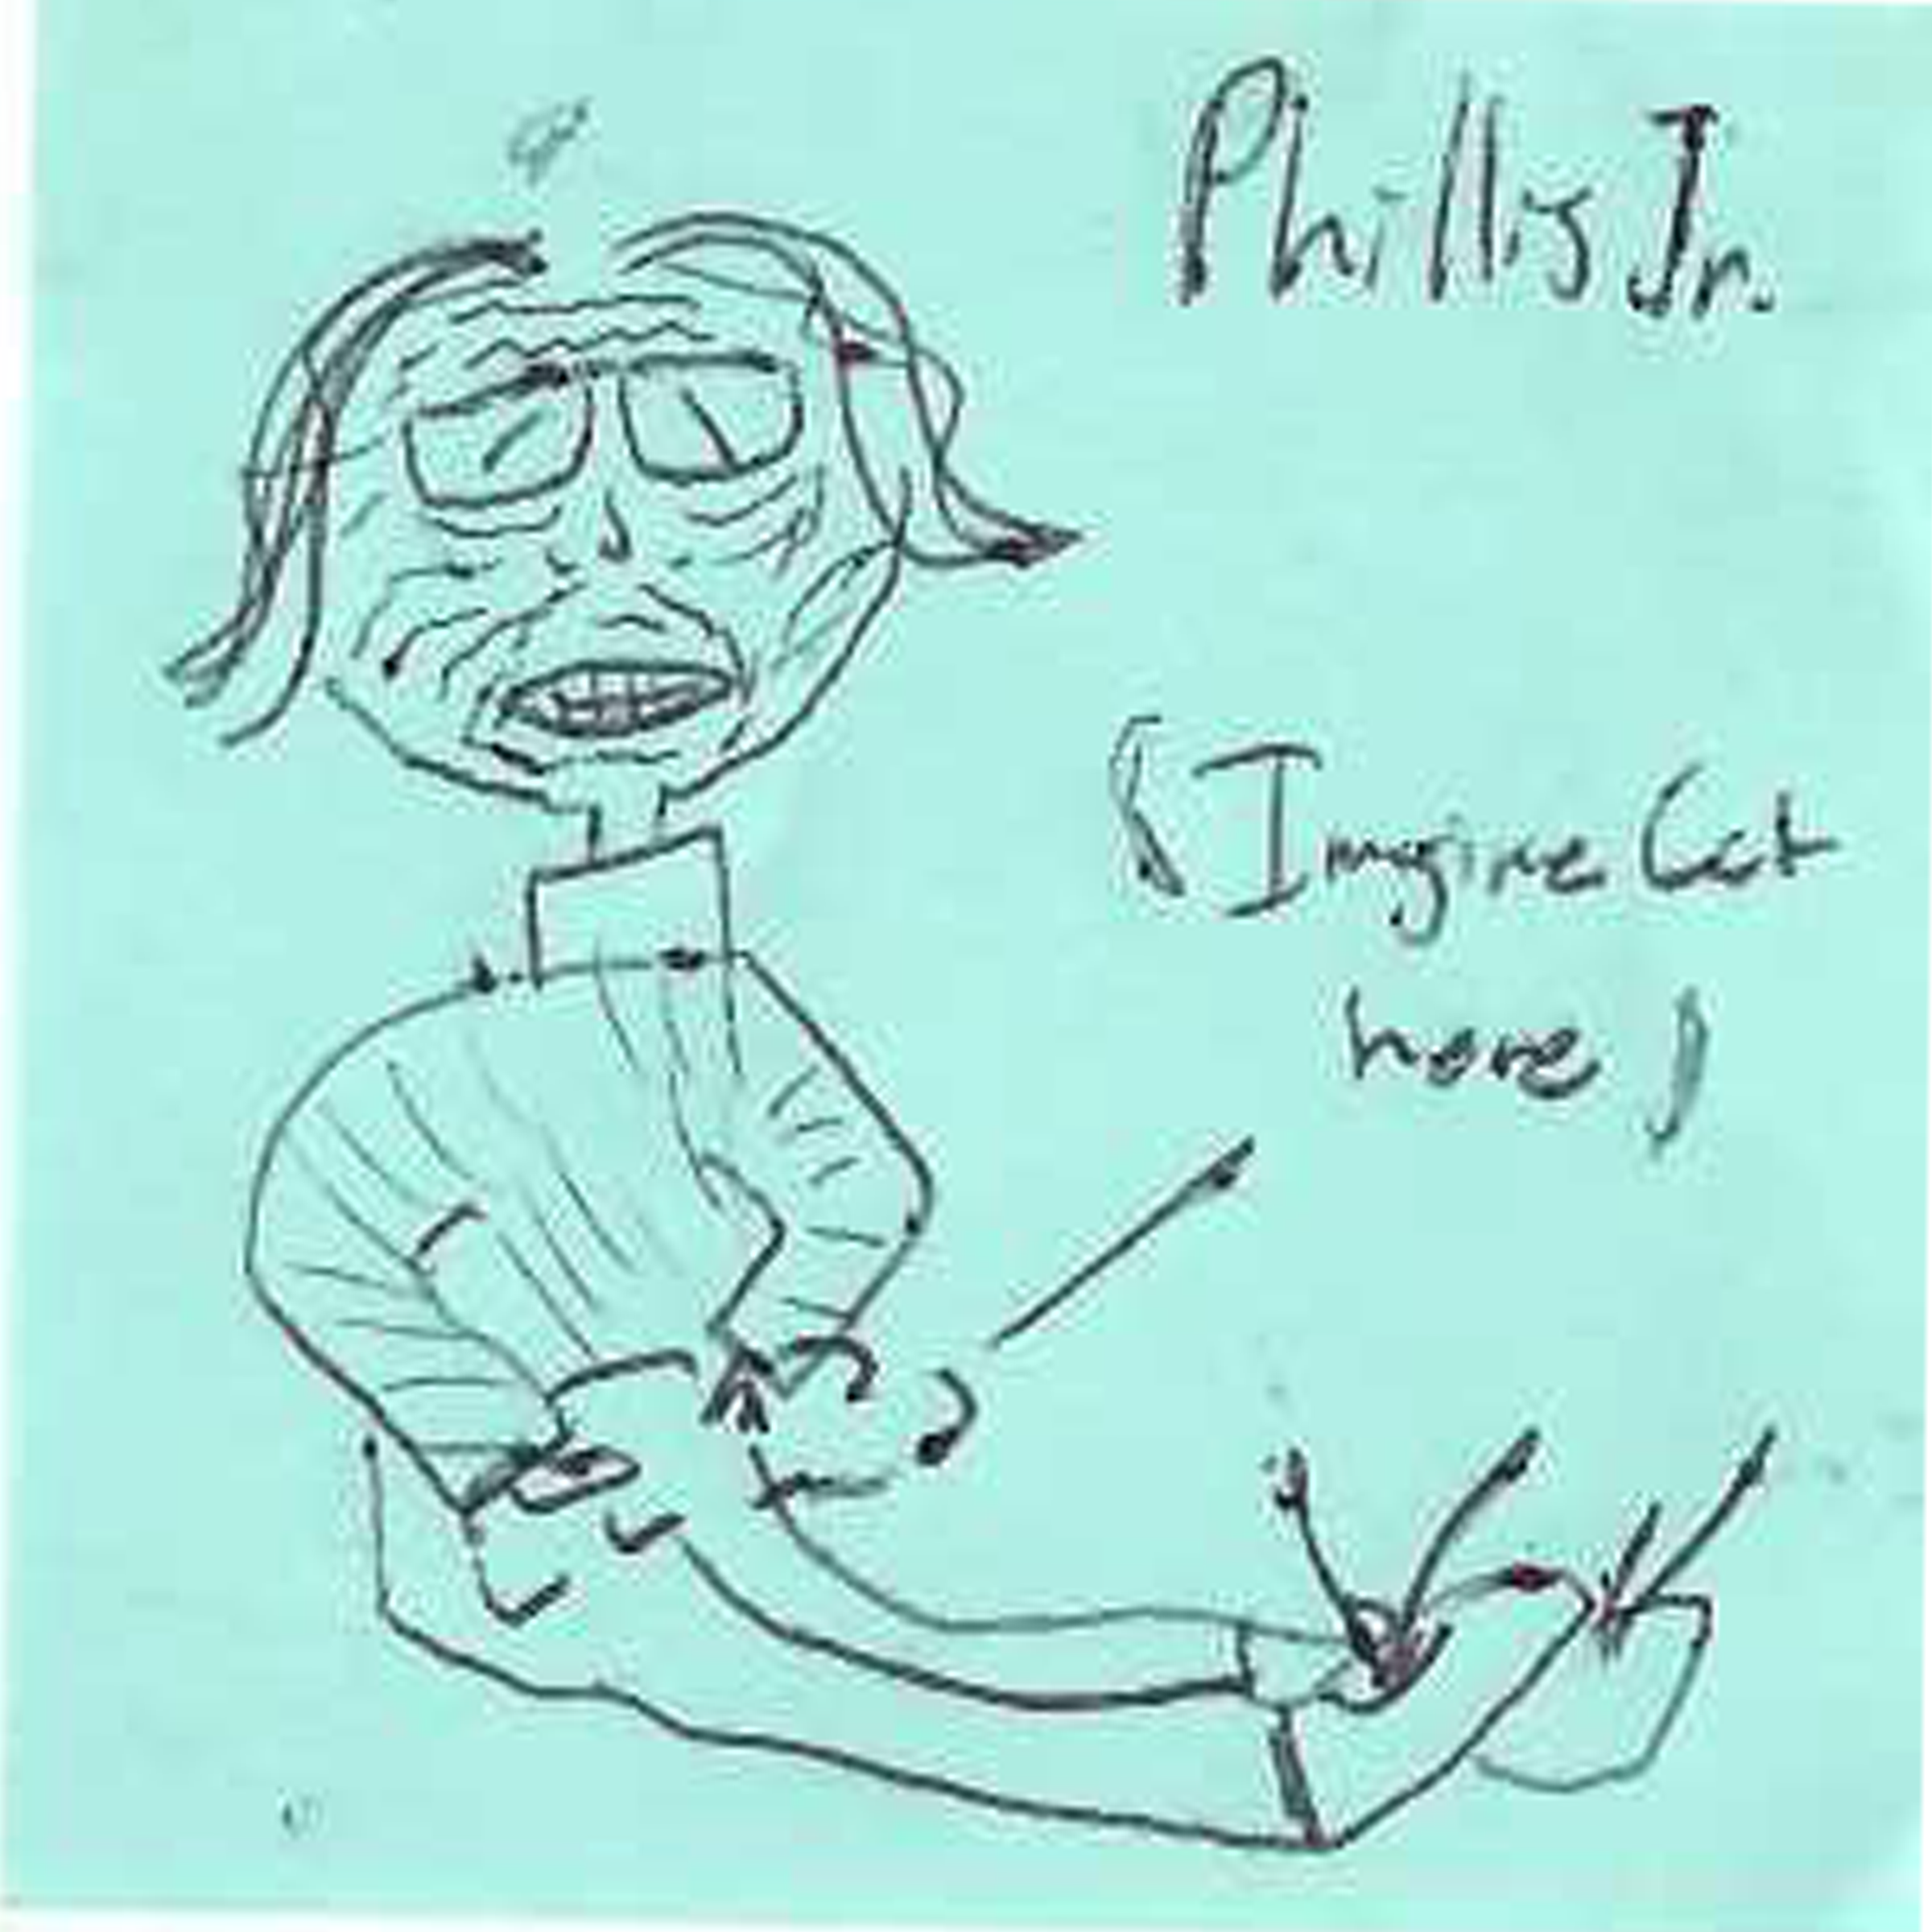 Phillis Jr.
(Imagine Cat
here)